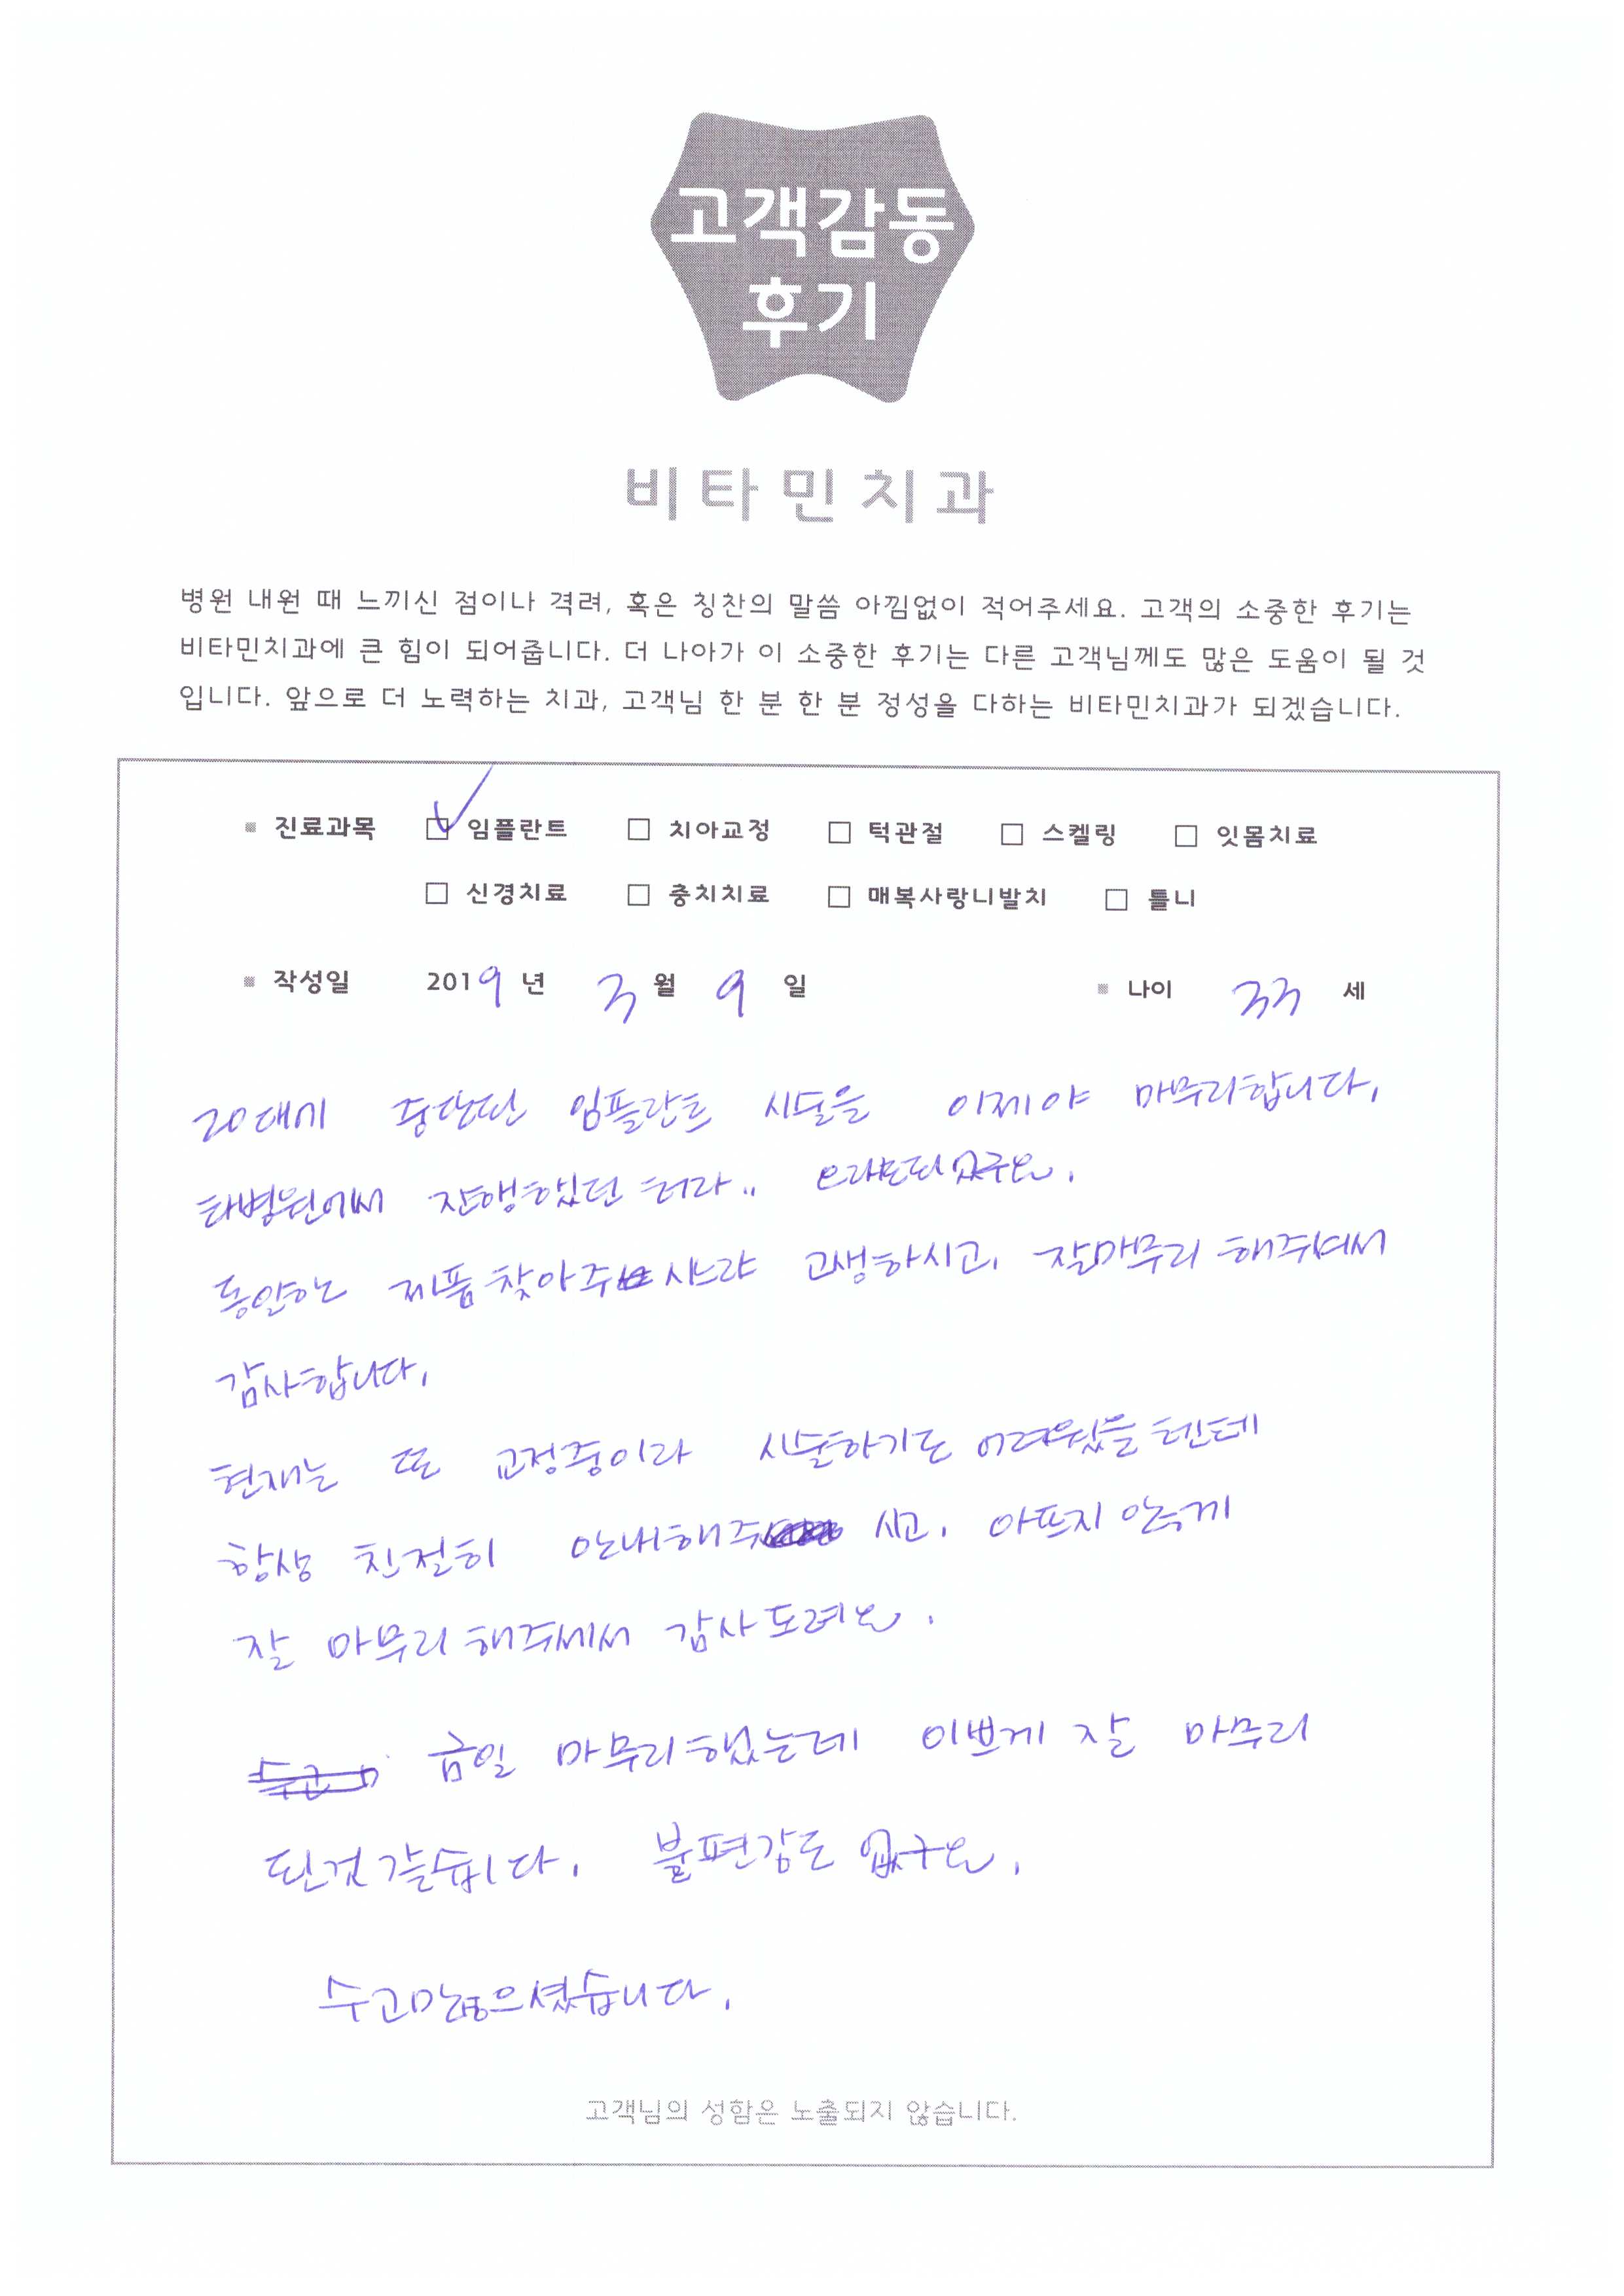 고객감동
후기
비타민치과
병원 내원 때 느끼신 점이나 격려, 혹은 칭찬의 말씀 아낌없이 적어주세요. 고객의 소중한 후기는
비타민치과에 큰 힘이 되어줍니다. 더 나아가 이 소중한 후기는 다른 고객님께도 많은 도움이 될 것
입니다. 앞으로 더 노력하는 치과, 고객님 한 분 한 분 정성을 다하는 비타민치과가 되겠습니다.
진료과목 임플란트 치아교정 턱관절 스켈링 잇몸치료
신경치료 충치치료 매복사랑니발치 틀니
작성일 2019 년 3 월 9 일 나이 33 세
20대에 중단된 임플란트 시술을 이제야 마무리합니다.
타병원에서 진행했던 터라..
동일한 제품 찾아주시느라 고생하시고, 잘마무리 해주셔서
감사합니다.
현재는 또 교정중이라 시술하기도 어려웠을텐데
항상 친절히 안내해주시고, 아프지 않게
잘 마무리해주셔서 감사드려요.
금일 마무리했는데 이쁘게 잘 마무리
된것같습니다. 불편감도 없구요.
수고많으셨습니다.
고객님의 성함은 노출되지 않습니다.